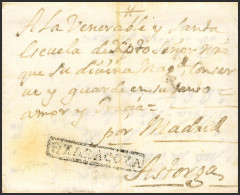 A la Venerable y Santa
Escuela de Xpto Señor Nro
que su divina Magd. conser
ve y guarde en su santo
amor y Gracia
por Madrid
ZARAGOZA
Astorga